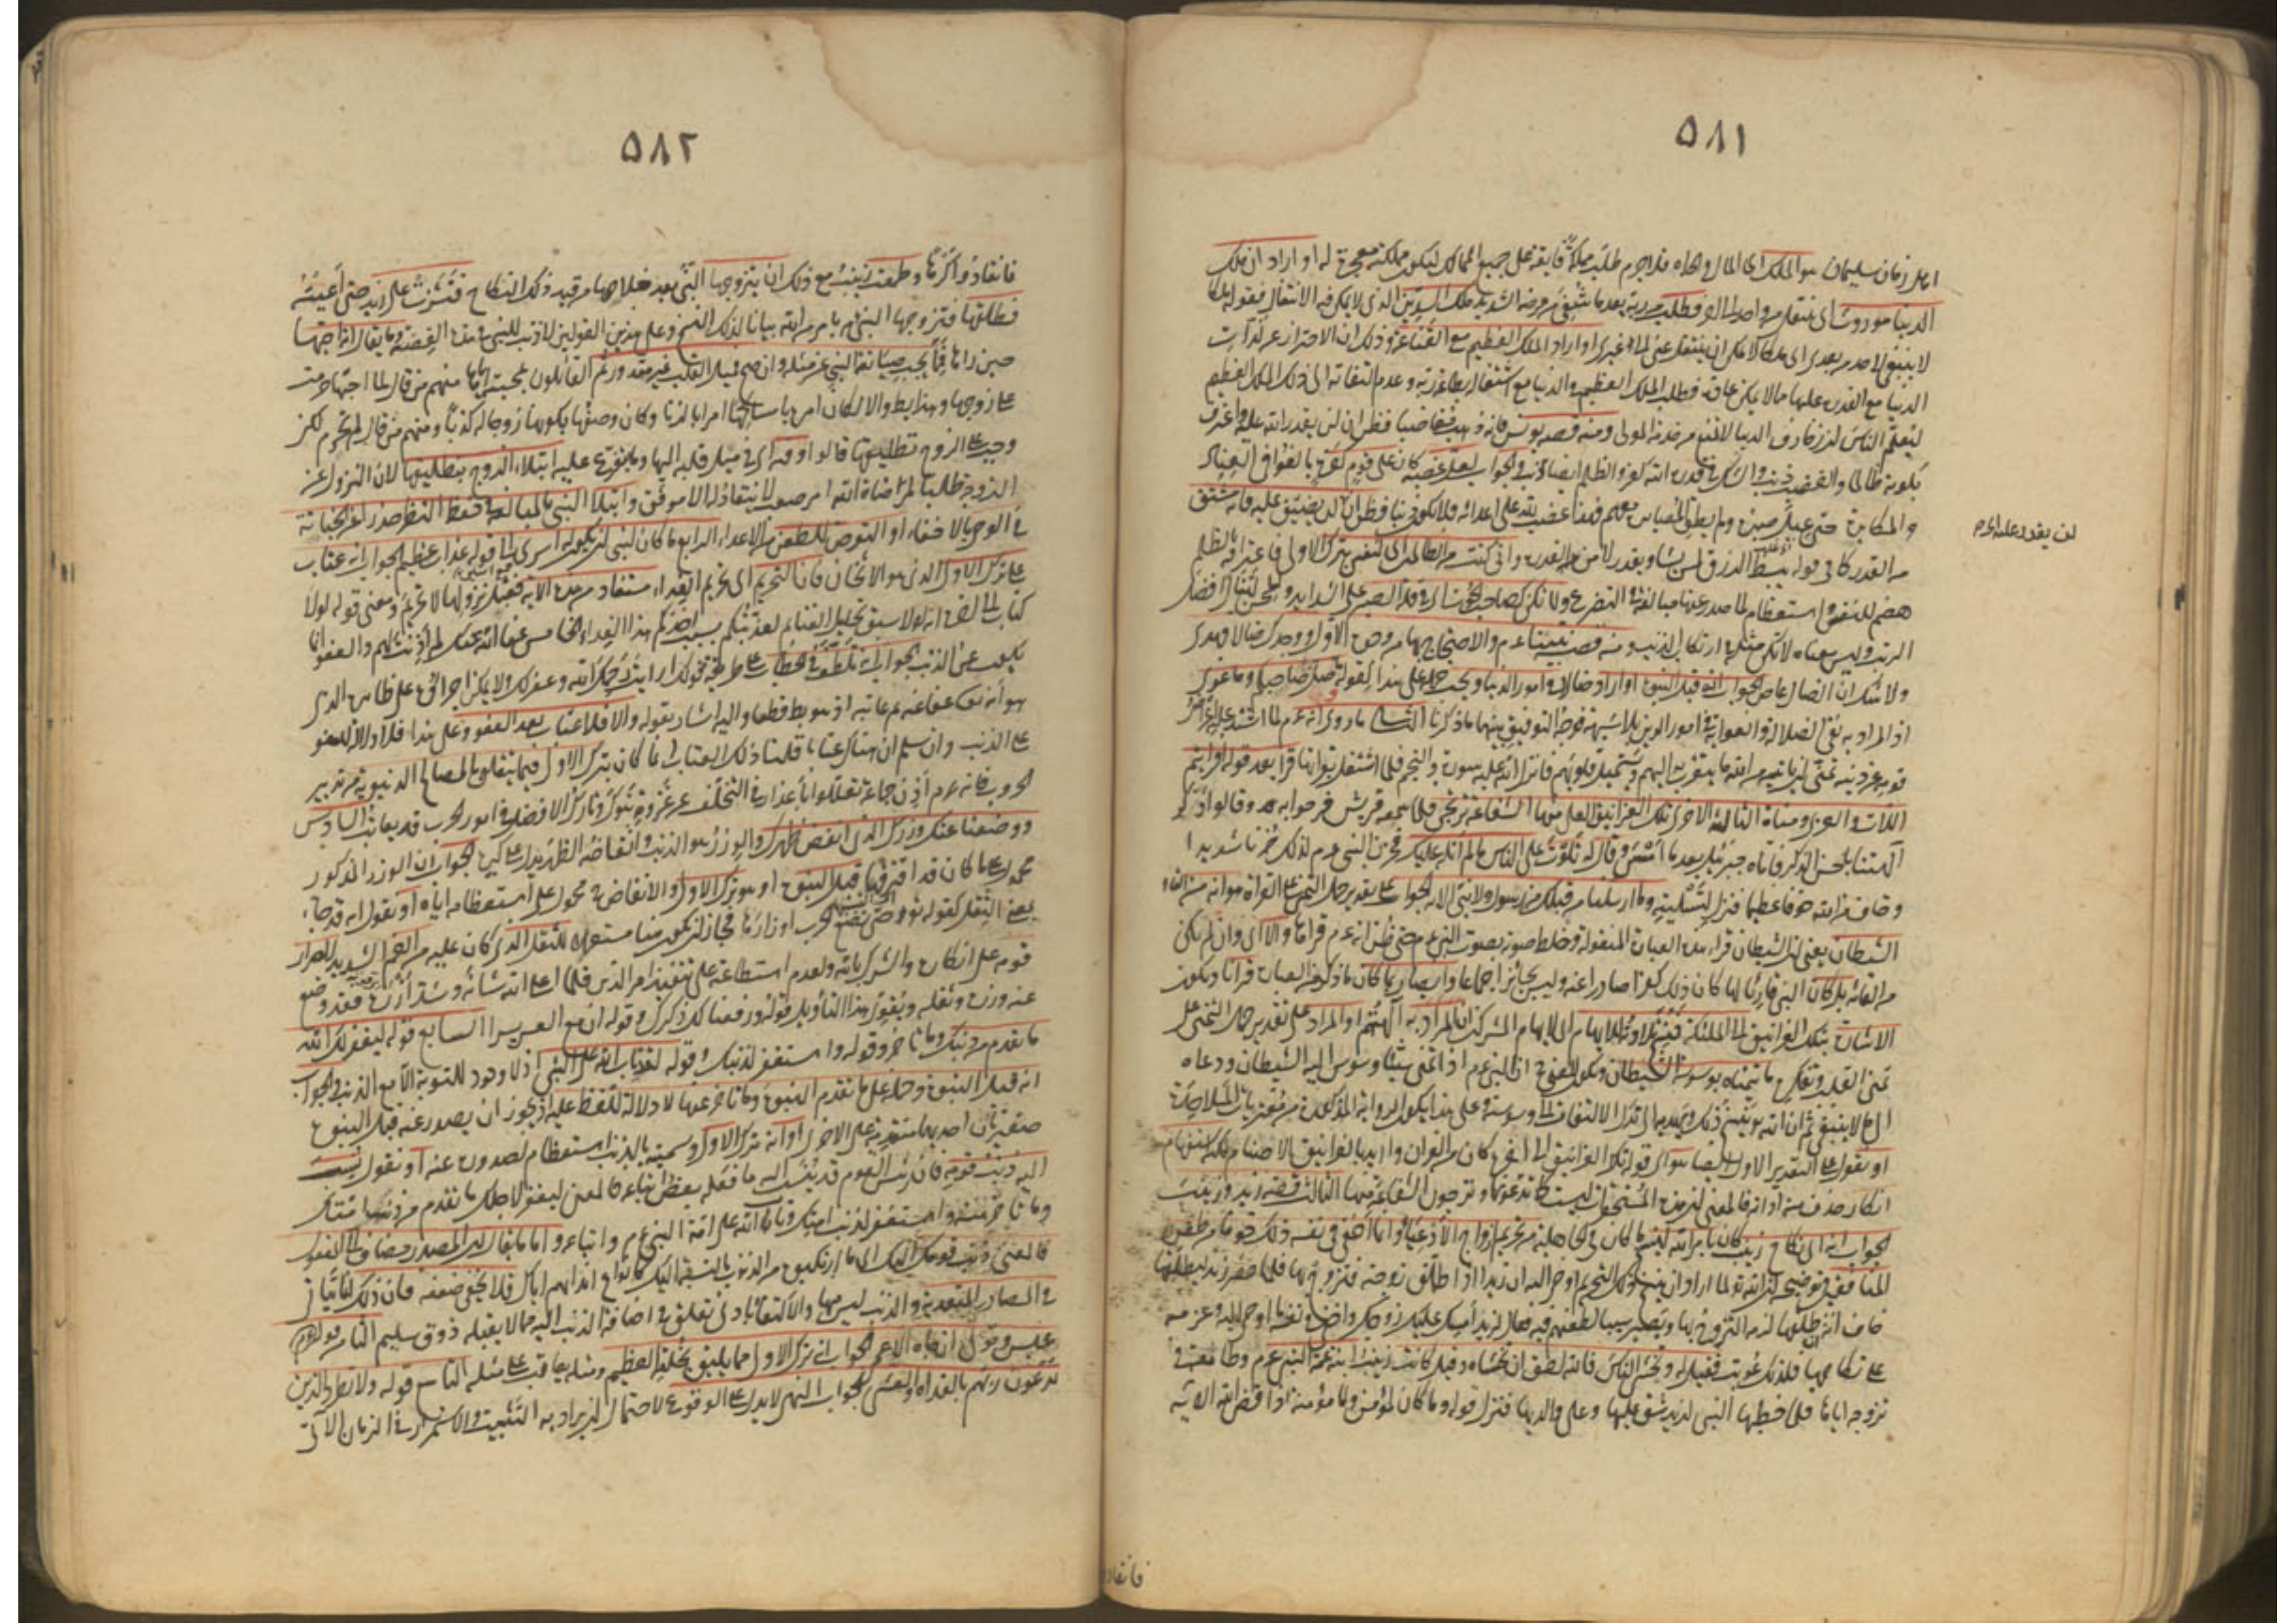 ٥٨١
اهل زمان سليمان هو الملك اى المال والجاه فلاجرم طلب مملكة فايقة على جميع الممالك ليكون مملكته معجزة له او اراد ان ملك
الدنيا موروث اى ينتقل من واحد الى اخر فطلب من ربه بعد ما شفى من مرضه الشديد ملك الدين الذى لا يمكن فيه الانتقال فقوله ملكا
لا ينبغى لاحد من بعدى اى ملكا لا يمكن ان ينتقل عنى الى غيرى او اراد الملك العظيم مع القناعة وذلك ان الاحتراز عن لذات
الدنيا مع القدرة عليها مما لا يمكن عادة فطلب الملك العظيم فى الدنيا مع اشتغاله بطاعة ربه وعدم التفاته الى ذلك الملك العظيم
ليعلم الناس ان زخارف الدنيا لا تمنع من خدمة المولى ومنه قصة يونس فانه ذهب مغاضبا فظن ان لن يقدر الله عليه واعترف
بكونه ظالما والغضب ذنب والشك فى قدرة الله كفر والظلم ايضا ذنب والجواب لعل غضبه كان على قوم كفرة بالغوا فى العناد
والمكابرة حتى عيل صبره ولم يطق المصابرة معهم فهذا غضب لله على اعدائه فلا يكون ذنبا فظن ان لن نضيق عليه فانه مشتق
لن يقدر عليه اى
من القدر كما فى قوله يبسط الرزق لمن يشاء ويقدر لا من القدرة وانى كنت من الظالمين اى لنفسى بترك الاولى فاعترافه بالظلم
هضم للنفس واستعظام لما صدر عنها مبالغة فى التضرع ولا تكن كصاحب الحوت اى فى قلة الصبر على الشدايد والمحن لتنال افضل
الرتب وليس معناه لا تكن مثله فى ارتكاب الذنب ومنه قصة نبينا عم والاحتجاج بها من وجوه الاول ووجدك ضالا فهدى
ولا شك ان الضال عاص الجواب انه قبل النبوة او اراد ضالا فى امور الدنيا ويجب حمله على هذا لقوله ما ضل صاحبكم وما غوى
اذ المراد به نفى الضلالة والغواية فى امور الدين بلا شبهة فوجه التوفيق بينهما ما ذكرنا الثانى ما روى انه عم لما اشتد عليه اعراض
قومه عن دينه تمنى ان ياتيه من الله ما يتقرب به اليهم ويستميل قلوبهم فانزل الله عليه سورة والنجم فلما اشتغل بقراءتها قرأ بعد قوله افرأيتم
اللات والعزى ومناة الثالثة الاخرى تلك الغرانيق العلى منها الشفاعة ترتجى فلما سمعه قريش فرحوا به وقالوا قد ذكر
آلهتنا باحسن الذكر فاتاه جبرئيل بعد ما امسى وقال له تلوت على الناس ما لم اتله عليك فحزن النبى عم لذلك حزنا شديدا
وخاف من الله خوفا عظيما فنزل لتسليته وما ارسلنا من قبلك من رسول ولا نبى الاية الجواب على تقدير حمل التمنى على القراءة هو انه من القاء
الشيطان يعنى ان الشيطان قرأ هذه العبارة المنقولة وخلط صوته بصوت النبى عم حتى ظن انه عم قرأها والا اى وان لم يكن
من القائه بل كان النبى قارئا لها كان ذلك كفرا صادرا عنه وليس بجائز اجماعا وايضا ربما كان ما ذكر من العبارة قرانا وتكون
الاشارة بتلك الغرانيق الى الملئكة فنسخ تلاوته للايهام اى لايهام المشركين ان المراد به آلهتهم او المراد على تقدير حمل التمنى على
تمنى القلب وتفكره ما يتمناه بوسوسة الشيطان ويكون المعنى ان النبى عم اذا تمنى شيئا وسوس اليه الشيطان ودعاه
الى ما لا ينبغى ثم ان الله ينسخ ذلك ويهديه الى ترك الالتفات الى وسوسته وعلى هذا يكون الرواية المذكورة من مفتريات الملاحدة
او نقول على التقدير الاول ايضا هو اى قوله تلك الغرانيق الى آخره كان من القران واريد بالغرانيق الاصنام لكنه استفهام
انكار حذف منه اداته فالمعنى ان هذه المستحقرات ليست كما تدعونها وترجون الشفاعة منها الثالث قصة زيد وزينب
الجواب انه اى نكاح زينب كان بامر الله لينسخ ما كان فى الجاهلية من تحريم ازواج الادعياء وانما اخفى فى نفسه ذلك خوفا من طعن
المنافقين توضيحه ان الله تعالى لما اراد ان ينسخ ذلك التحريم اوحى اليه ان زيدا اذا طلق زوجته فتزوج بها فلما حضر زيد ليطلقها
خاف انه ان طلقها لزمه التزوج بها ويصير سببا لطعنهم فيه فقال لزيد امسك عليك زوجك واخفى فى نفسه ما اوحى اليه وعزمه
على نكاحها فلذلك عوتب فقيل له وتخشى الناس فالله احق ان تخشاه وقيل كانت زينب ابنة عمة النبى عم وطامعة فى
تزوجه اياها فلما خطبها النبى لزيد شق عليها وعلى والديها فنزل قوله وما كان لمؤمن ولا مؤمنة اذا قضى الله الاية
فانقادوا
٥٨٢
فانقادوا كرها وطمعت زينب مع ذلك ان يتزوجها النبى بعد خلاصها من قيد ذلك النكاح فنشزت على زيد حتى اعيته
فطلقها فتزوجها النبى عم بامر من الله بيانا لذلك النسخ وعلى هذين القولين لا ذنب للنبى فى هذه القصة وما يقال انه احبها
حين رآها فمما يجب صيانة النبى عن مثله وان صح فميل القلب غير مقدور ثم القائلون بمحبته اياها منهم من قال لما احبها حرمت
على زوجها وهذا باطل والا لكان امره بامساكها امرا بالزنا وكان وصفها بكونها زوجا له كذبا ومنهم من قال لم تحرم لكن
وجب على الزوج تطليقها قالوا وفيه اى فى ميل قلبه اليها وما يتفرع عليه ابتلاء الزوج بتطليقها لان النزول عن
الزوجة طلبا لمرضاة الله امر صعب لا ينقاد له الا موفق وابتلاء النبى بالمبالغة فى حفظ النظر حذرا عن الخيانة
فى الوحى بالاخفاء او التعرض للطعن من الاعداء الرابع ما كان لنبى ان يكون له اسرى الى قوله عذاب عظيم الجواب انه عتاب
على ترك الاولى الذى هو الاثخان فان التحريم اى تحريم الفداء مستفاد من هذه الاية فقبل نزولها لا تحريم ومعنى قوله لولا
كتاب الى آخره انه لولا سبق تحليل الغنائم لعذبتكم بسبب اخذكم هذا الفداء الخامس عفا الله عنك لم اذنت لهم والعفو انما
يكون عن الذنب الجواب انه تلطف فى الخطاب على طريقة قولك ارايت رحمك الله وغفر لك ولا يمكن اجراؤه على ظاهره الذى
هو انه تعالى عفا عنه ثم عاتبه اذ هو باطل قطعا واليه اشار بقوله والا فلا عتاب بعد العفو وعلى هذا فلا دلالة للعفو
على الذنب وان سلم ان هناك عتابا قلنا ذلك العتاب انما كان بترك الاولى فيما يتعلق بالمصالح الدنيوية من تدبير
الحروب فانه عم اذن جماعة تعللوا باعذار فى التخلف عن غزوة تبوك وتارك الافضل فى امور الحرب قد يعاتب السادس
ووضعنا عنك وزرك الذى انقض ظهرك والوزر هو الذنب وانقاضه الظهر يدل على كبره الجواب ان الوزر المذكور
محمول على ما كان قد اقترفها قبل النبوة او هو ترك الاولى والانقاض محمول على استعظامه اياه او نقول انه قد جاء
بمعنى الثقل كقوله تع حتى تضع الحرب اوزارها فجاز ان يكون هنا مستعملا للثقل الذى كان عليه من الغم الشديد لاصرار
قومه على انكاره والشرك بالله ولعدم استطاعته على تنفيذ امر الدين فلما اعلى الله شانه وشد ازره فقد وضع
عنه وزره وثقله ويقوى هذا التاويل قوله ورفعنا لك ذكرك وقوله ان مع العسر يسرا السابع قوله ليغفر لك الله
ما تقدم من ذنبك وما تاخر وقوله واستغفر لذنبك وقوله لقد تاب الله على النبى اذ لا وجود للتوبة الا مع الذنب والجواب
انه قبل النبوة وحمله على ما تقدم النبوة وما تاخر عنها لا دلالة للفظ عليه اذ يجوز ان يصدر عنه قبل النبوة
صغيرتان احديهما متقدمة على الاخرى او انه ترك الاولى وتسميته بالذنب استعظام لصدوره عنه او نقول نسب
اليه ذنب قومه فان رئيس القوم قد ينسب اليه ما فعله بعض اتباعه فالمعنى ليغفر لاجلك ما تقدم من ذنب امتك
وما تاخر منه واستغفر لذنب امتك وتاب الله على امة النبى عم واتباعه واما ما يقال ان المصدر مضاف الى المفعول
فالمعنى ذنب قومك اليك اى ما ارتكبوه من الذنوب بالنسبة اليك كانواع ايذائهم اياك فلا يخفى ضعفه فان ذلك انما يتاتى
فى المصادر المتعدية والذنب ليس منها والاكتفاء بادنى تعلق فى اضافة الذنب اليه مما لا يقبله ذوق سليم الثامن قوله
عبس وتولى ان جاءه الاعمى الجواب انه ترك الاولى مما يليق بخلقه العظيم ومثله يعاقب على مثله التاسع قوله ولا تطرد الذين
يدعون ربهم بالغداة والعشى الجواب النهى لا يدل على الوقوع لاحتمال ان يراد به التثبيت والاستمرار فى الزمان الآتى